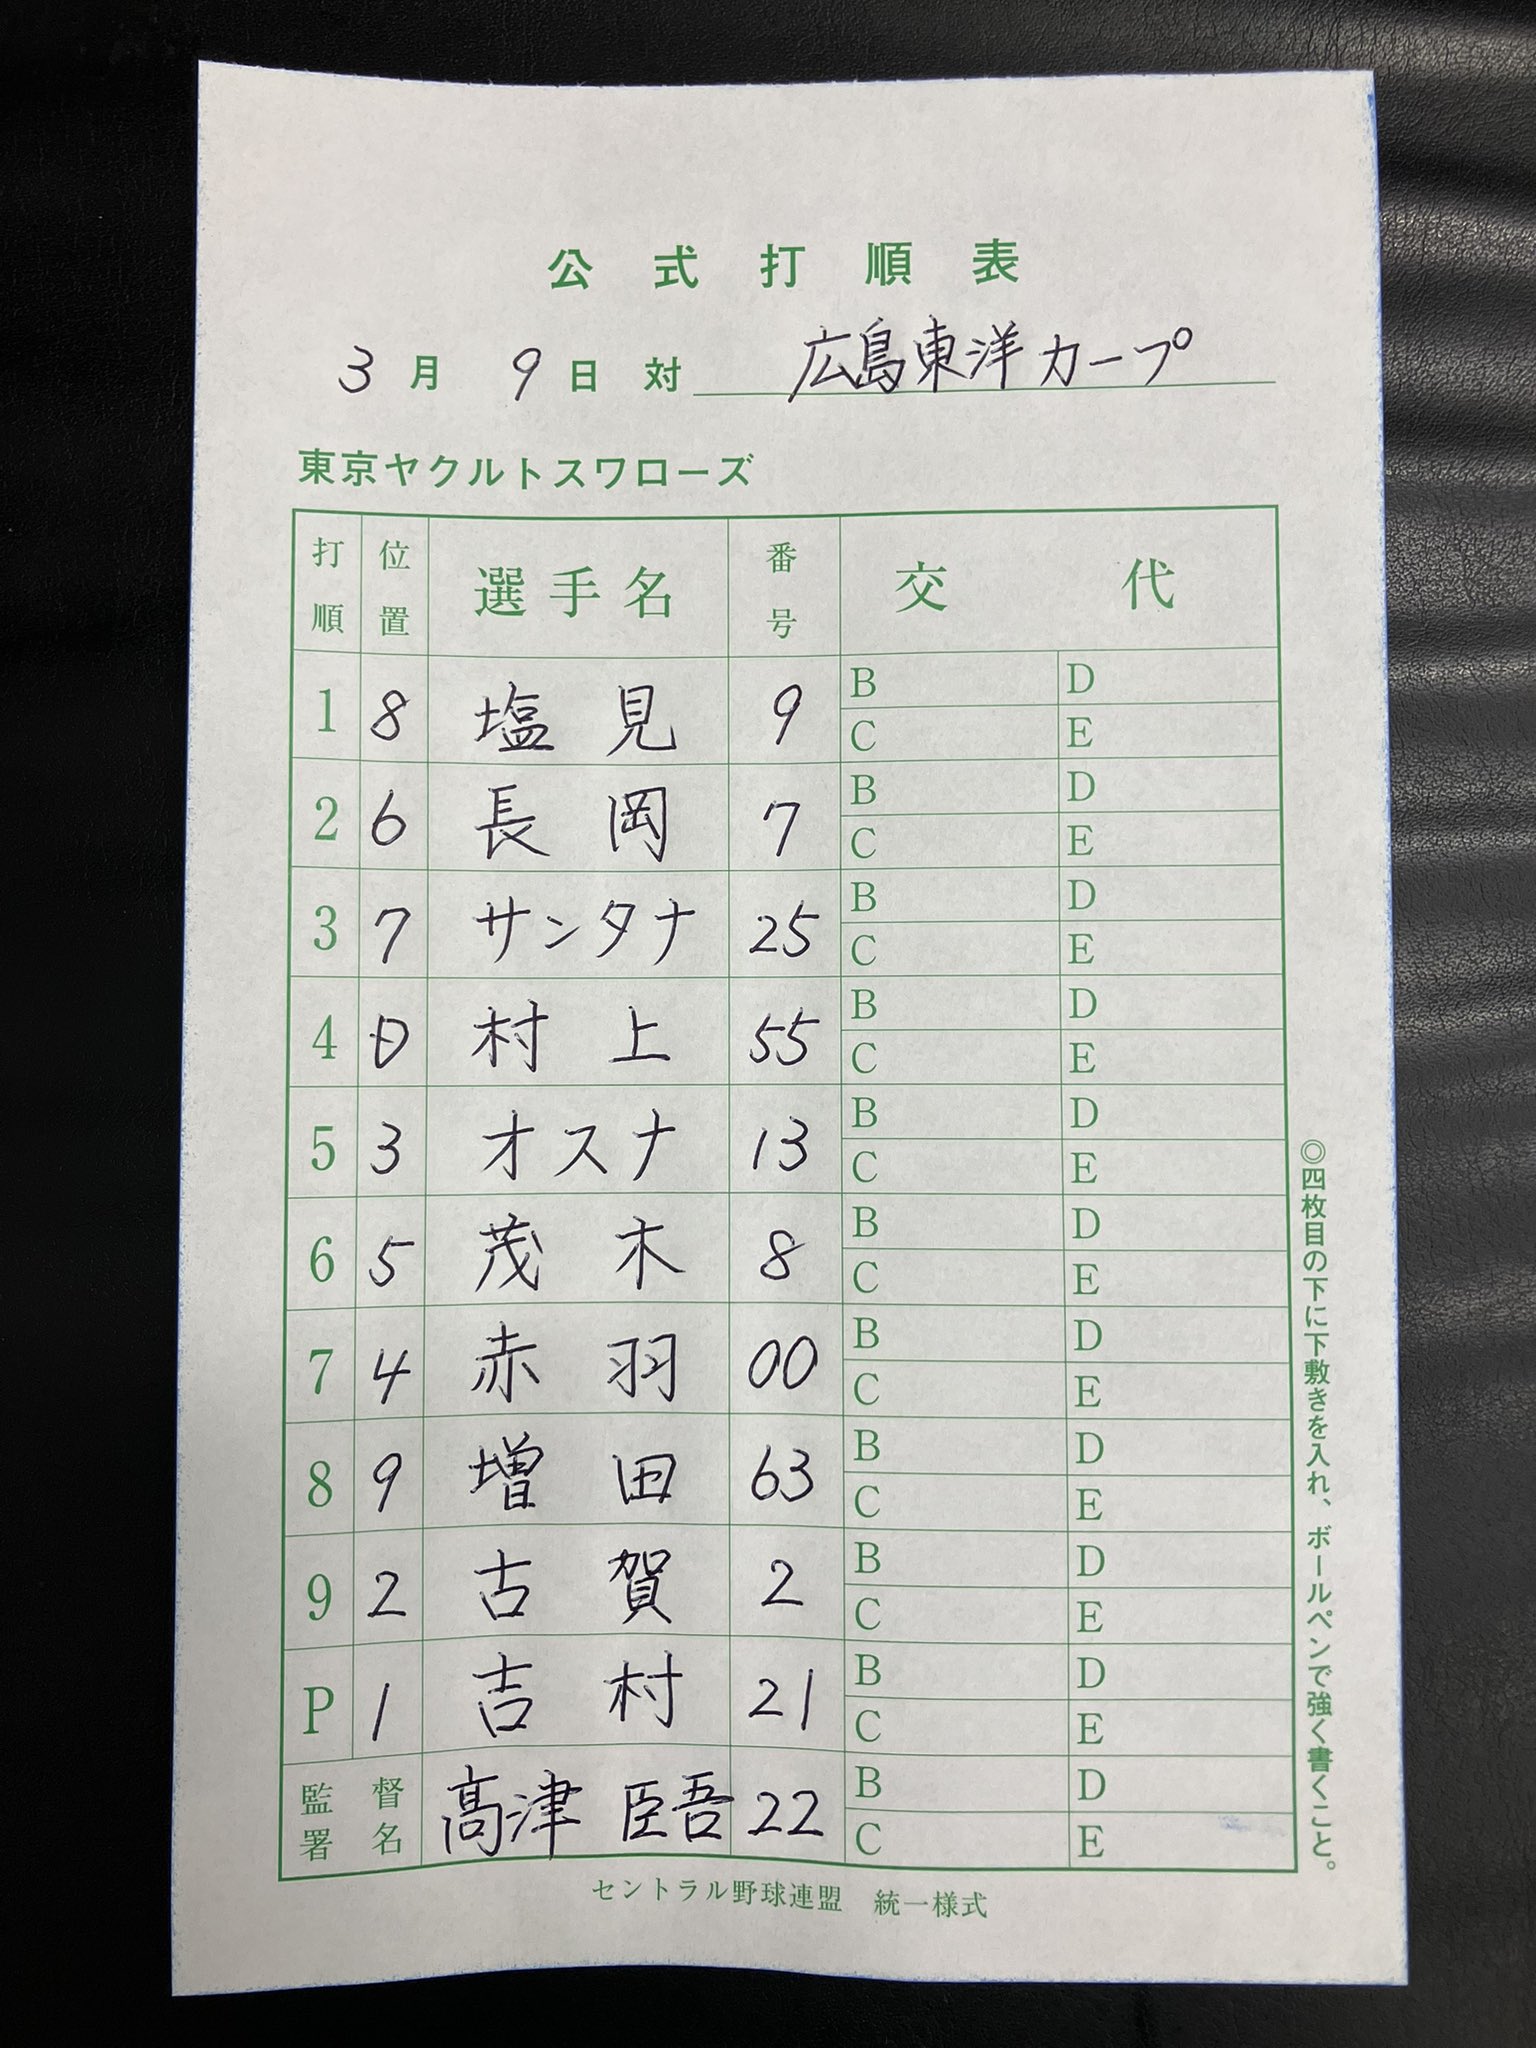 公式打順表
3月 9日 対 広島東洋カープ
東京ヤクルトスワローズ
打順 位置 選手名 番号 交代
1 8 塩見 9 B D
C E
2 6 長岡 7 B D
C E
3 7 サンタナ 25 B D
C E
4 D 村上 55 B D
C E
5 3 オスナ 13 B D
C E
6 5 茂木 8 B D
C E
7 4 赤羽 00 B D
C E
8 9 増田 63 B D
C E
9 2 古賀 2 B D
C E
P 1 吉村 21 B D
C E
監督署名 髙津 臣吾 22 B D
C E
◎四枚目の下に下敷きを入れ、ボールペンで強く書くこと。
セントラル野球連盟 統一様式